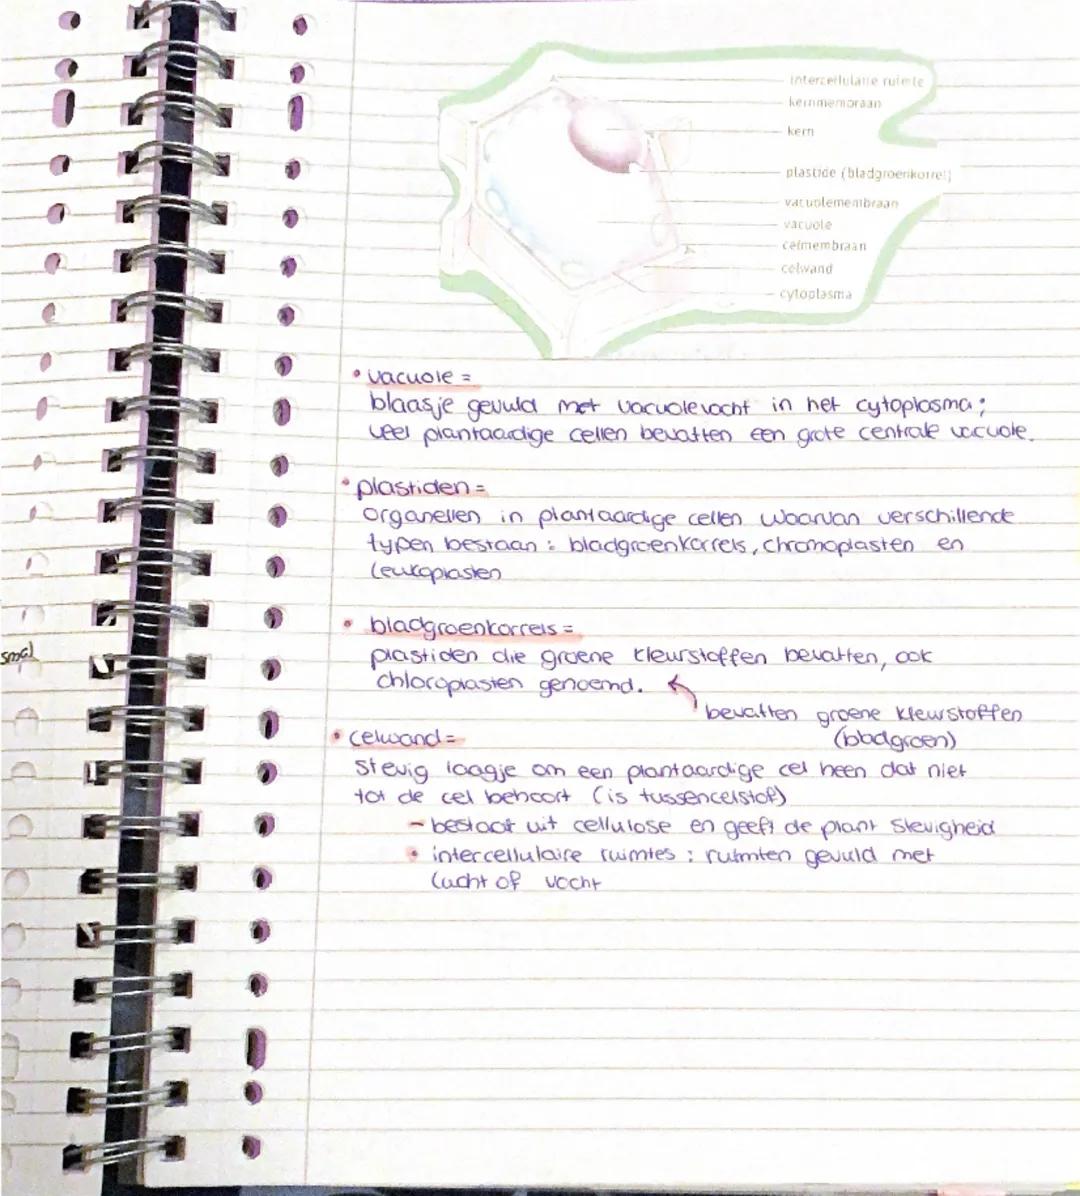 intercellulaire ruimte
kernmembraan
kern
plastide (bladgroenkorrel)
vacuolemembraan
vacuole
celmembraan
celwand
cytoplasma
• vacuole =
blaasje gevuld met vacuolevocht in het cytoplasma;
veel plantaardige cellen bevatten een grote centrale vacuole.
• plastiden =
organellen in plantaardige cellen waarvan verschillende
typen bestaan : bladgroenkorrels, chromoplasten en
leukoplasten
• bladgroenkorrels =
plastiden die groene kleurstoffen bevatten, ook
chloroplasten genoemd.
bevatten groene kleurstoffen
(bladgroen)
• celwand =
stevig laagje om een plantaardige cel heen dat niet
tot de cel behoort (is tussencelstof)
- bestaat uit cellulose en geeft de plant stevigheid
• intercellulaire ruimtes : ruimten gevuld met
lucht of vocht
smal